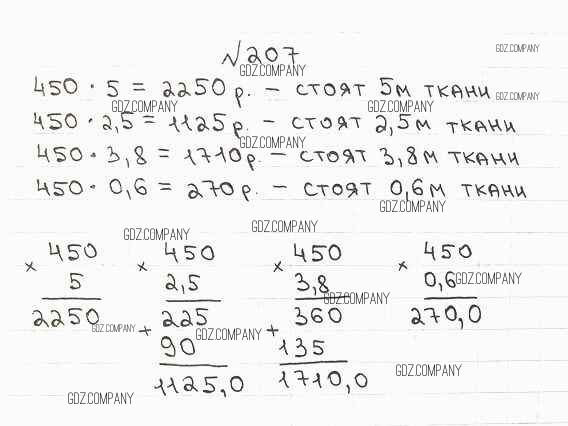 №207
GDZ.COMPANY
GDZ.COMPANY
450 · 5 = 2250 р. – стоят 5м ткани
GDZ.COMPANY
GDZ.COMPANY
GDZ.COMPANY
450 · 2,5 = 1125 р. – стоят 2,5м ткани
GDZ.COMPANY
450 · 3,8 = 1710 р. – стоят 3,8м ткани
450 · 0,6 = 270 р. – стоят 0,6м ткани
GDZ.COMPANY
GDZ.COMPANY
GDZ.COMPANY
× 450 × 450 × 450 × 450
5 2,5 3,8 0,6
GDZ.COMPANY
GDZ.COMPANY
2250 225 360 270,0
GDZ.COMPANY
GDZ.COMPANY
+ 90 + 135
1125,0 1710,0
GDZ.COMPANY
GDZ.COMPANY